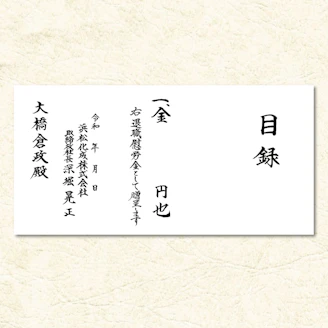 目録
一、金　円也
右退職慰労金として贈呈します
令和　年　月　日
浜松化成株式会社
取締役社長 深堀晃正
大橋倉政殿